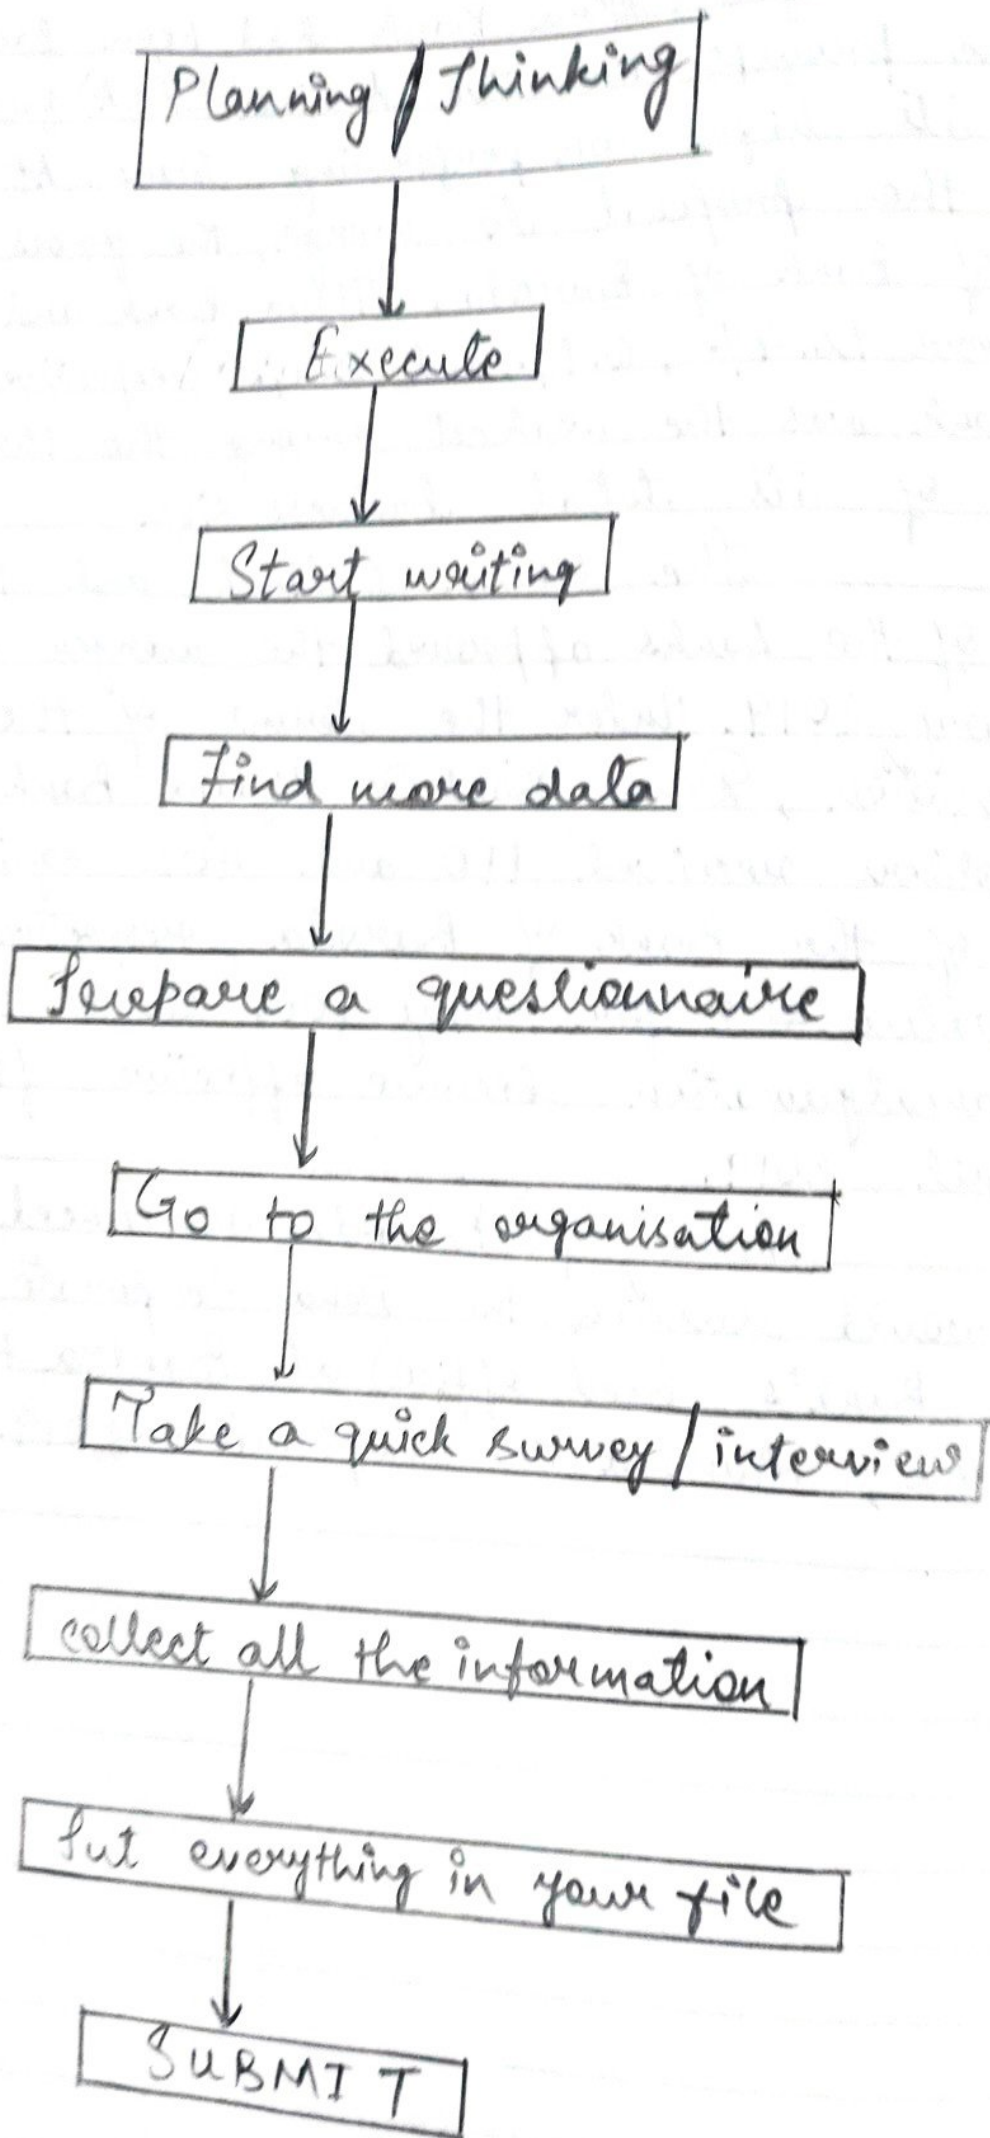 Planning / Thinking
Execute
Start writing
Find more data
Prepare a questionnaire
Go to the organisation
Take a quick survey / interview
collect all the information
Put everything in your file
SUBMIT